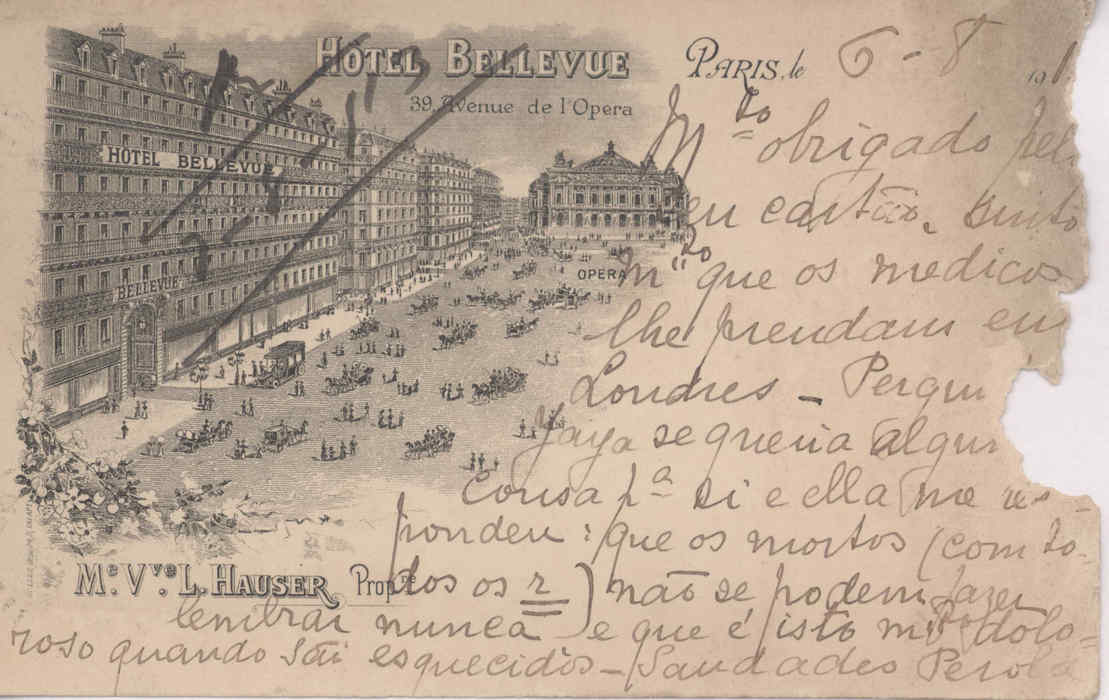 HÔTEL BELLEVUE
39, Avenue de l'Opera
PARIS, le 6-8 191
HÔTEL BELLEVUE
BELLEVUE
OPERA
Mto obrigado pel
eu cartão. Sinto
mto que os medicos
lhe prendam em
Londres – Pergun
Yaya se queria algu
cousa pa si e ella me res-
pondeu: que os mortos (com to-
dos os r) não se podem fazer
lembrar nunca e que é isto mto dolo-
roso quando são esquecidos – Saudades Perola
Me Vve L. HAUSER Propre